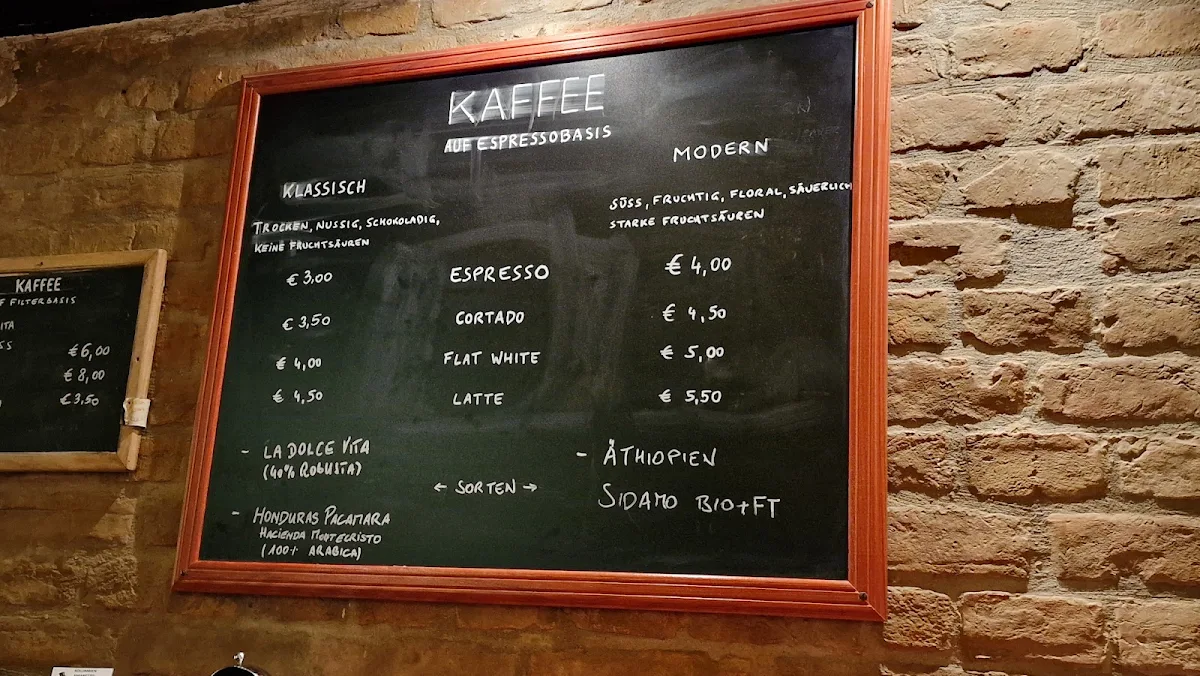 KAFFEE
AUF ESPRESSOBASIS
KLASSISCH
TROCKEN, NUSSIG, SCHOKOLADIG,
KEINE FRUCHTSÄUREN
MODERN
SÜSS, FRUCHTIG, FLORAL, SÄUERLICH
STARKE FRUCHTSÄUREN
€ 3,00 ESPRESSO € 4,00
€ 3,50 CORTADO € 4,50
€ 4,00 FLAT WHITE € 5,00
€ 4,50 LATTE € 5,50
- LA DOLCE VITA
(40% ROBUSTA)
- HONDURAS PACAMARA
HACIENDA MONTECRISTO
(100% ARABICA)
← SORTEN →
- ÄTHIOPIEN
SIDAMO BIO+FT
KAFFEE
F FILTERBASIS
ITA
SS
€ 6,00
€ 8,00
€ 3,50